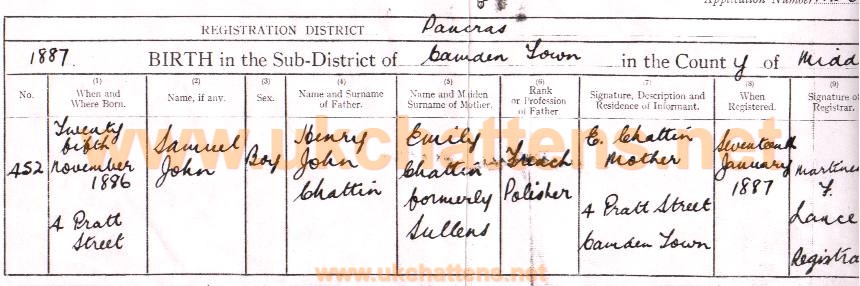 Application Number
REGISTRATION DISTRICT Pancras
1887. BIRTH in the Sub-District of Camden Town in the County of Midd
(1) (2) (3) (4) (5) (6) (7) (8) (9)
No. When and Where Born. Name, if any. Sex. Name and Surname of Father. Name and Maiden Surname of Mother. Rank or Profession of Father Signature, Description and Residence of Informant. When Registered. Signature of Registrar.
452
Twenty
fifth
November
1886
4 Pratt
Street
Samuel
John
Boy
Henry
John
Chattin
Emily
Chattin
formerly
Sullens
French
Polisher
E. Chattin
Mother
4 Pratt Street
Camden Town
Seventeenth
January
1887
Lance
Registra
www.ukchattens.net
www.ukchattens.net